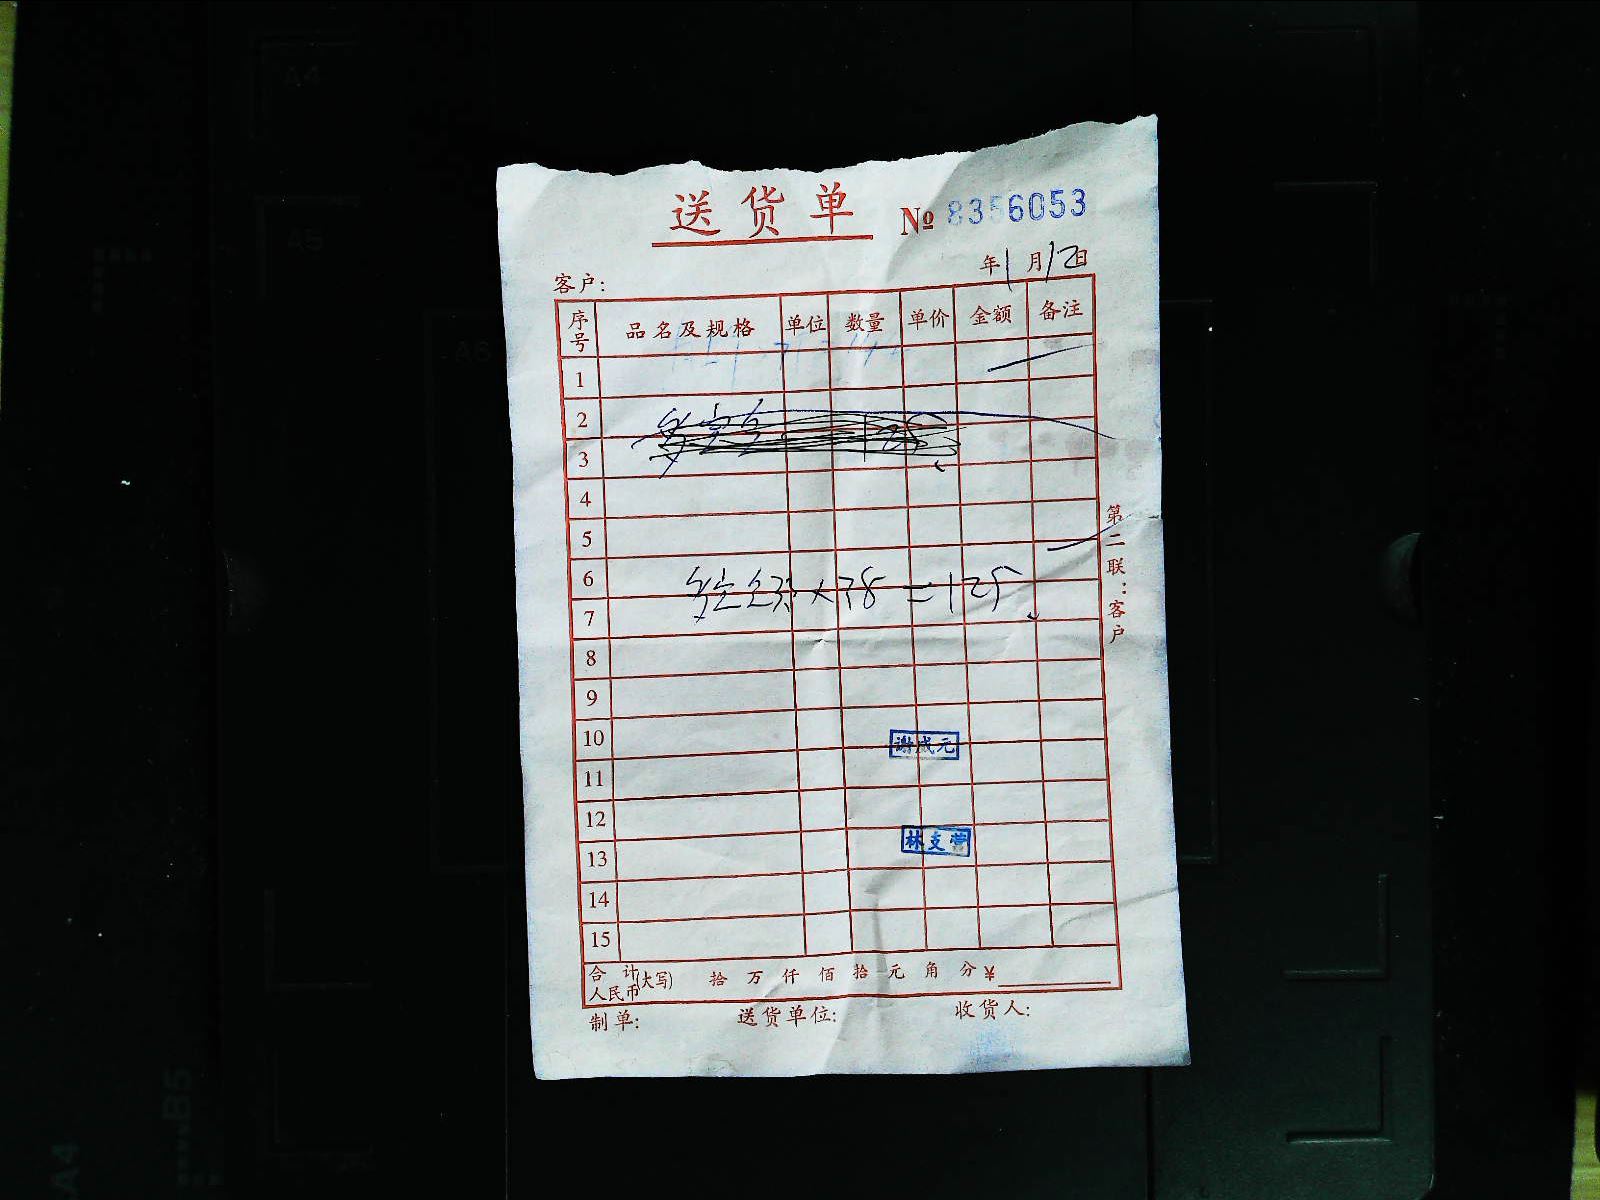 送货单
№ 8356053
年1月12日
客户:
序号 品名及规格 单位 数量 单价 金额 备注
1
2
3
4
5
6
7
8
9
10
11
12
13
14
15
=125
谢成元
林支营
第二联：客户
合计人民币(大写) 拾 万 仟 佰 拾 元 角 分 ¥
制单: 送货单位: 收货人:
A4
A5
A6
B5
A4